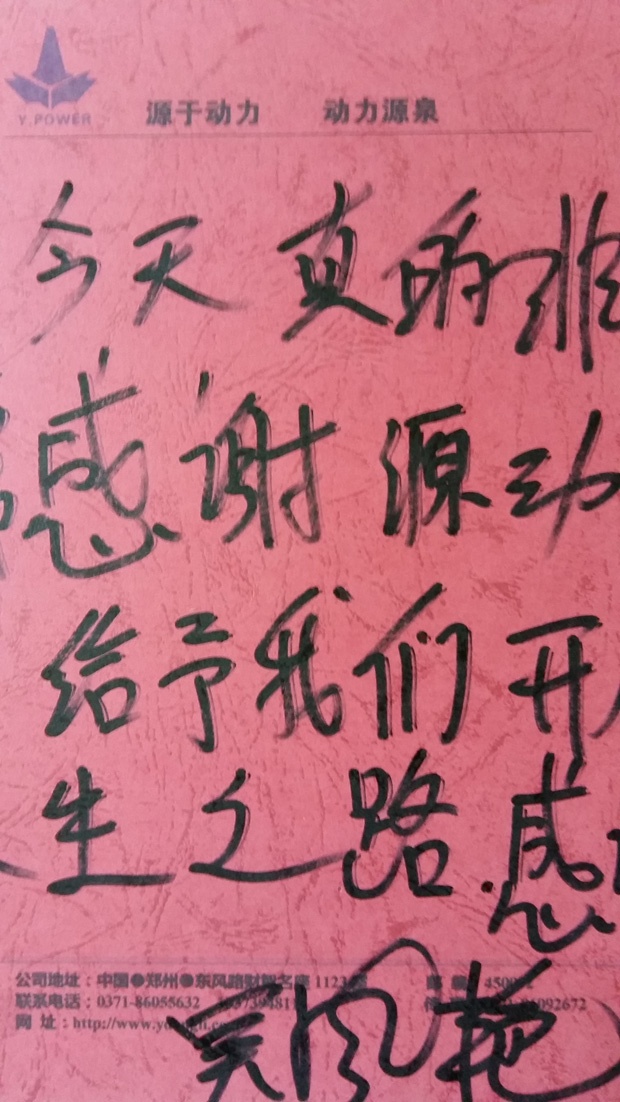 Y.POWER
源于动力 动力源泉
今天真的非
感谢源动
给予我们开
生之路.感
公司地址：中国●郑州●东风路财智名座1123
联系电话：0371-86055632
网 址：http://www.
吴凤艳